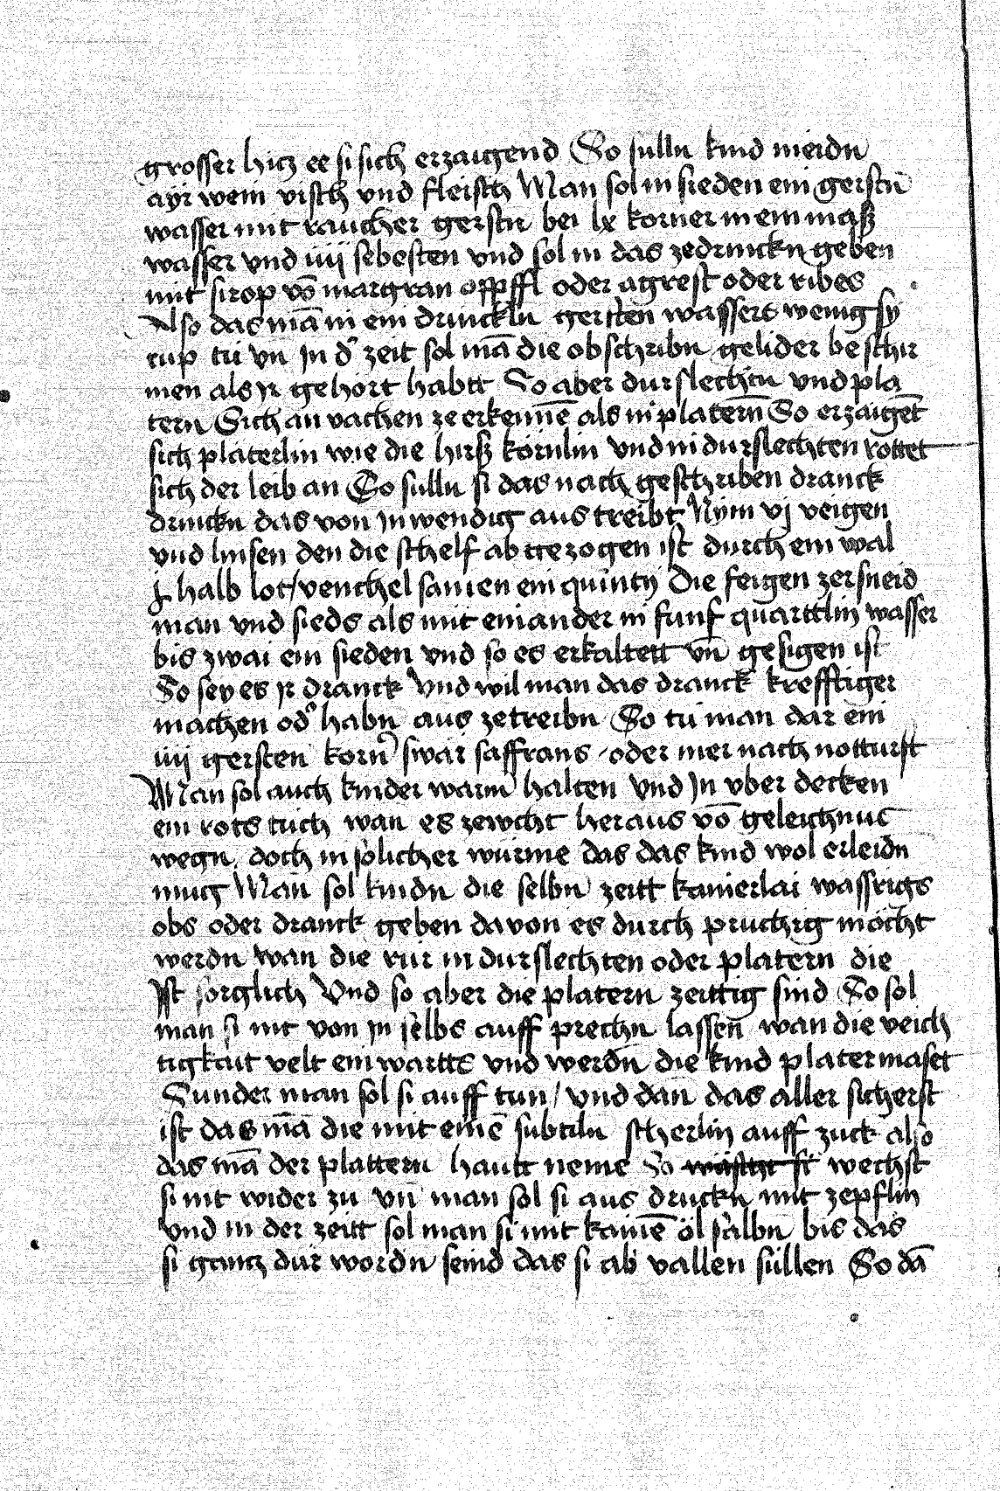 grosser hicz ee si sich erzaigend So sulln kind meidn
ayr wein visch vnd fleisch Man sol in sieden ein gerstn̄
wasser mit raucher gerstn bei lx korner in ein maß
wasser vnd iiij sebesten vnd sol in das zedrinckn geben
mit sirop vō margran oppffl oder agrest oder ribes
Also das mā in ein drinckln gersten wassers wenig sy
rup tu vn̄ Jn d' zeit sol mā die obschribn gelider beschir
men als ir gehort habtt So aber durslechtn vnd pla
tern Sich an vachen ze erkennē als in platern̄ So erzaigēt
sich platerlin wie die hirß kornlin vnd in durslechten rottet
sich der leib an So sulln si das nach geschriben dranck
drinckn das von inwendig aus treibt Nym vj veigen
vnd linsen den die schelf ab gezogen ist durch ein wal
halb lot / venchel samen ein quinty Die feigen zersneid
man vnd sieds als mit einander in funf quarttlin wasser
bis zwai ein sieden vnd so es erkaltett vn̄ gesigen ist
So sey es ir dranck Vnd wil man das dranck krefftiger
machen od' habn aus zetreibn So tu man dar ein
iiij gersten korn' swar saffrans oder mer nach notturft
Man sol auch kinder warm halten Vnd Jn vber decken
ein rots tuch wan es zewcht heraus vō geleichnuc
wegn doch in solicher wurme das das kind wol erleidn
mug Man sol kindn die selbn zeitt kainerlai wassrigs
obs oder dranck geben davon es durch pruchig mocht
werdn wan die rur in durslechten oder platern die
Ist sorglich Vnd so aber die platern zeittig sind So sol
man si nit von in selbs auff prechn lassen wan die veich
tigkait velt ein wartts vnd werdn̄ die kind platermaset
Sunder man sol si auff tun / vnd dan̄ das aller sicherst
ist das mā die mit einē subtiln scherlin auff zuck also
das mā der plattern hautt neme So wechst
si nit wider zu vn̄ man sol si aus druckn mit zepflin
vnd in der zeitt sol man si mit kainē öl salbn bis das
si gantz dur wordn seind das si ab vallen sullen So dā